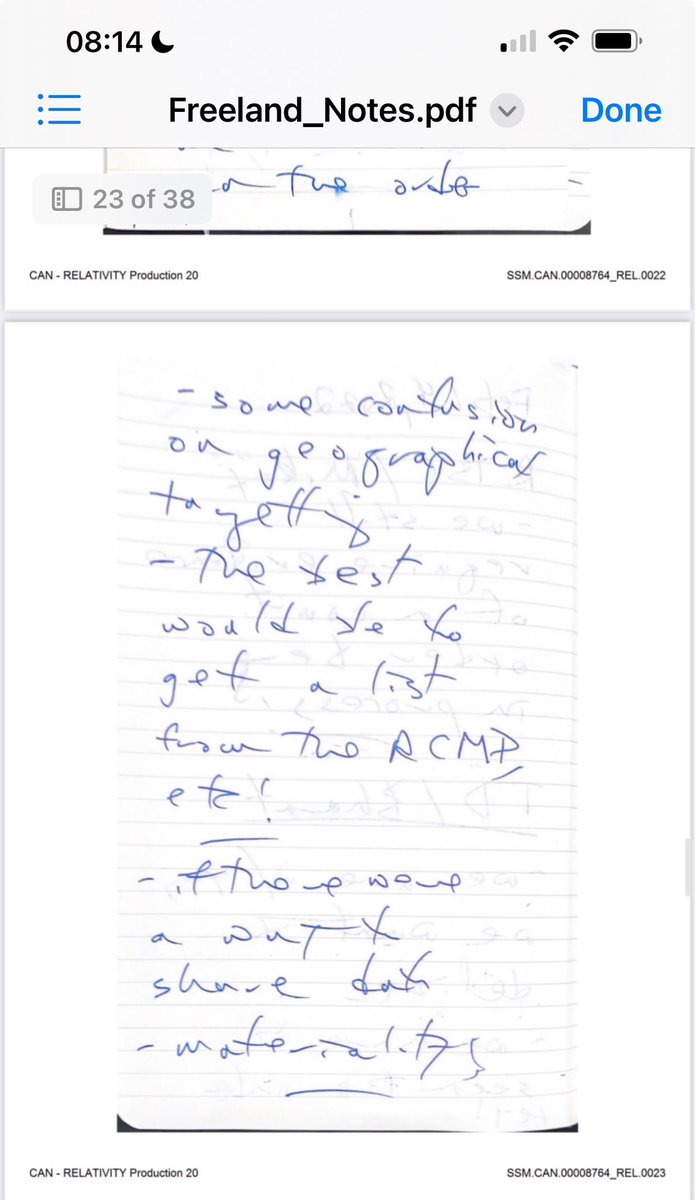 08:14
Freeland_Notes.pdf
Done
the order
23 of 38
CAN - RELATIVITY Production 20
SSM.CAN.00008764_REL.0022
- some confusion
on geographical
- The best
would be to
get a list
from the RCMP
etc!
- if there were
a way to
share data
- materiality
CAN - RELATIVITY Production 20
SSM.CAN.00008764_REL.0023